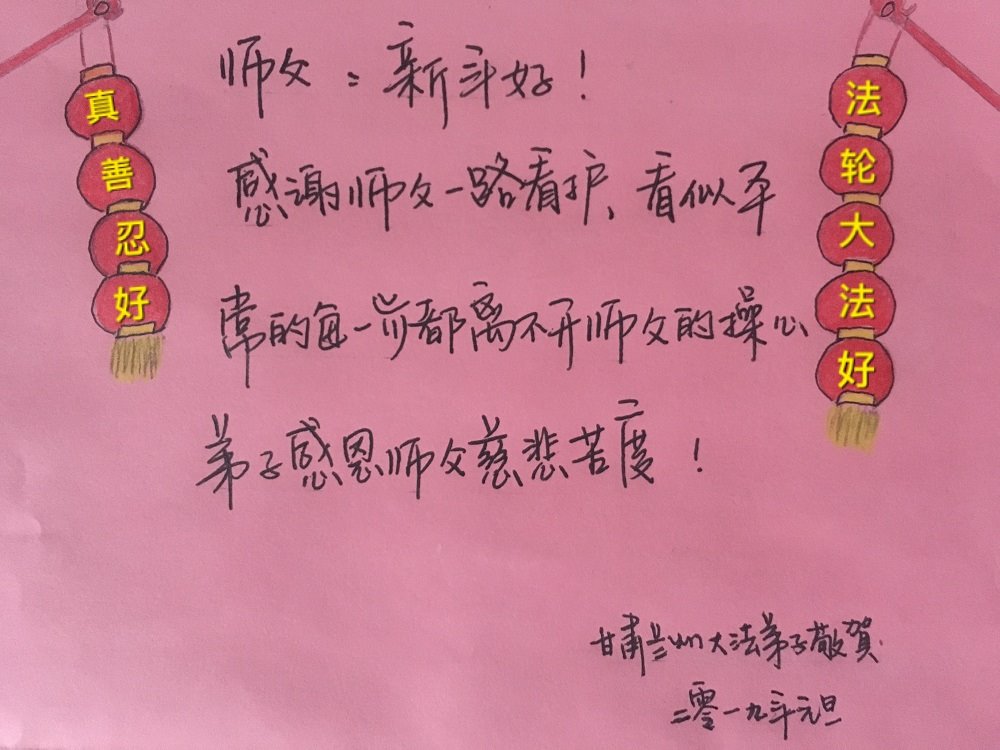 真善忍好
法轮大法好
师父：新年好！
感谢师父一路看护，看似平
常的每一步都离不开师父的操心
弟子感恩师父慈悲苦度！
甘肃兰州大法弟子敬贺
二零一九年元旦